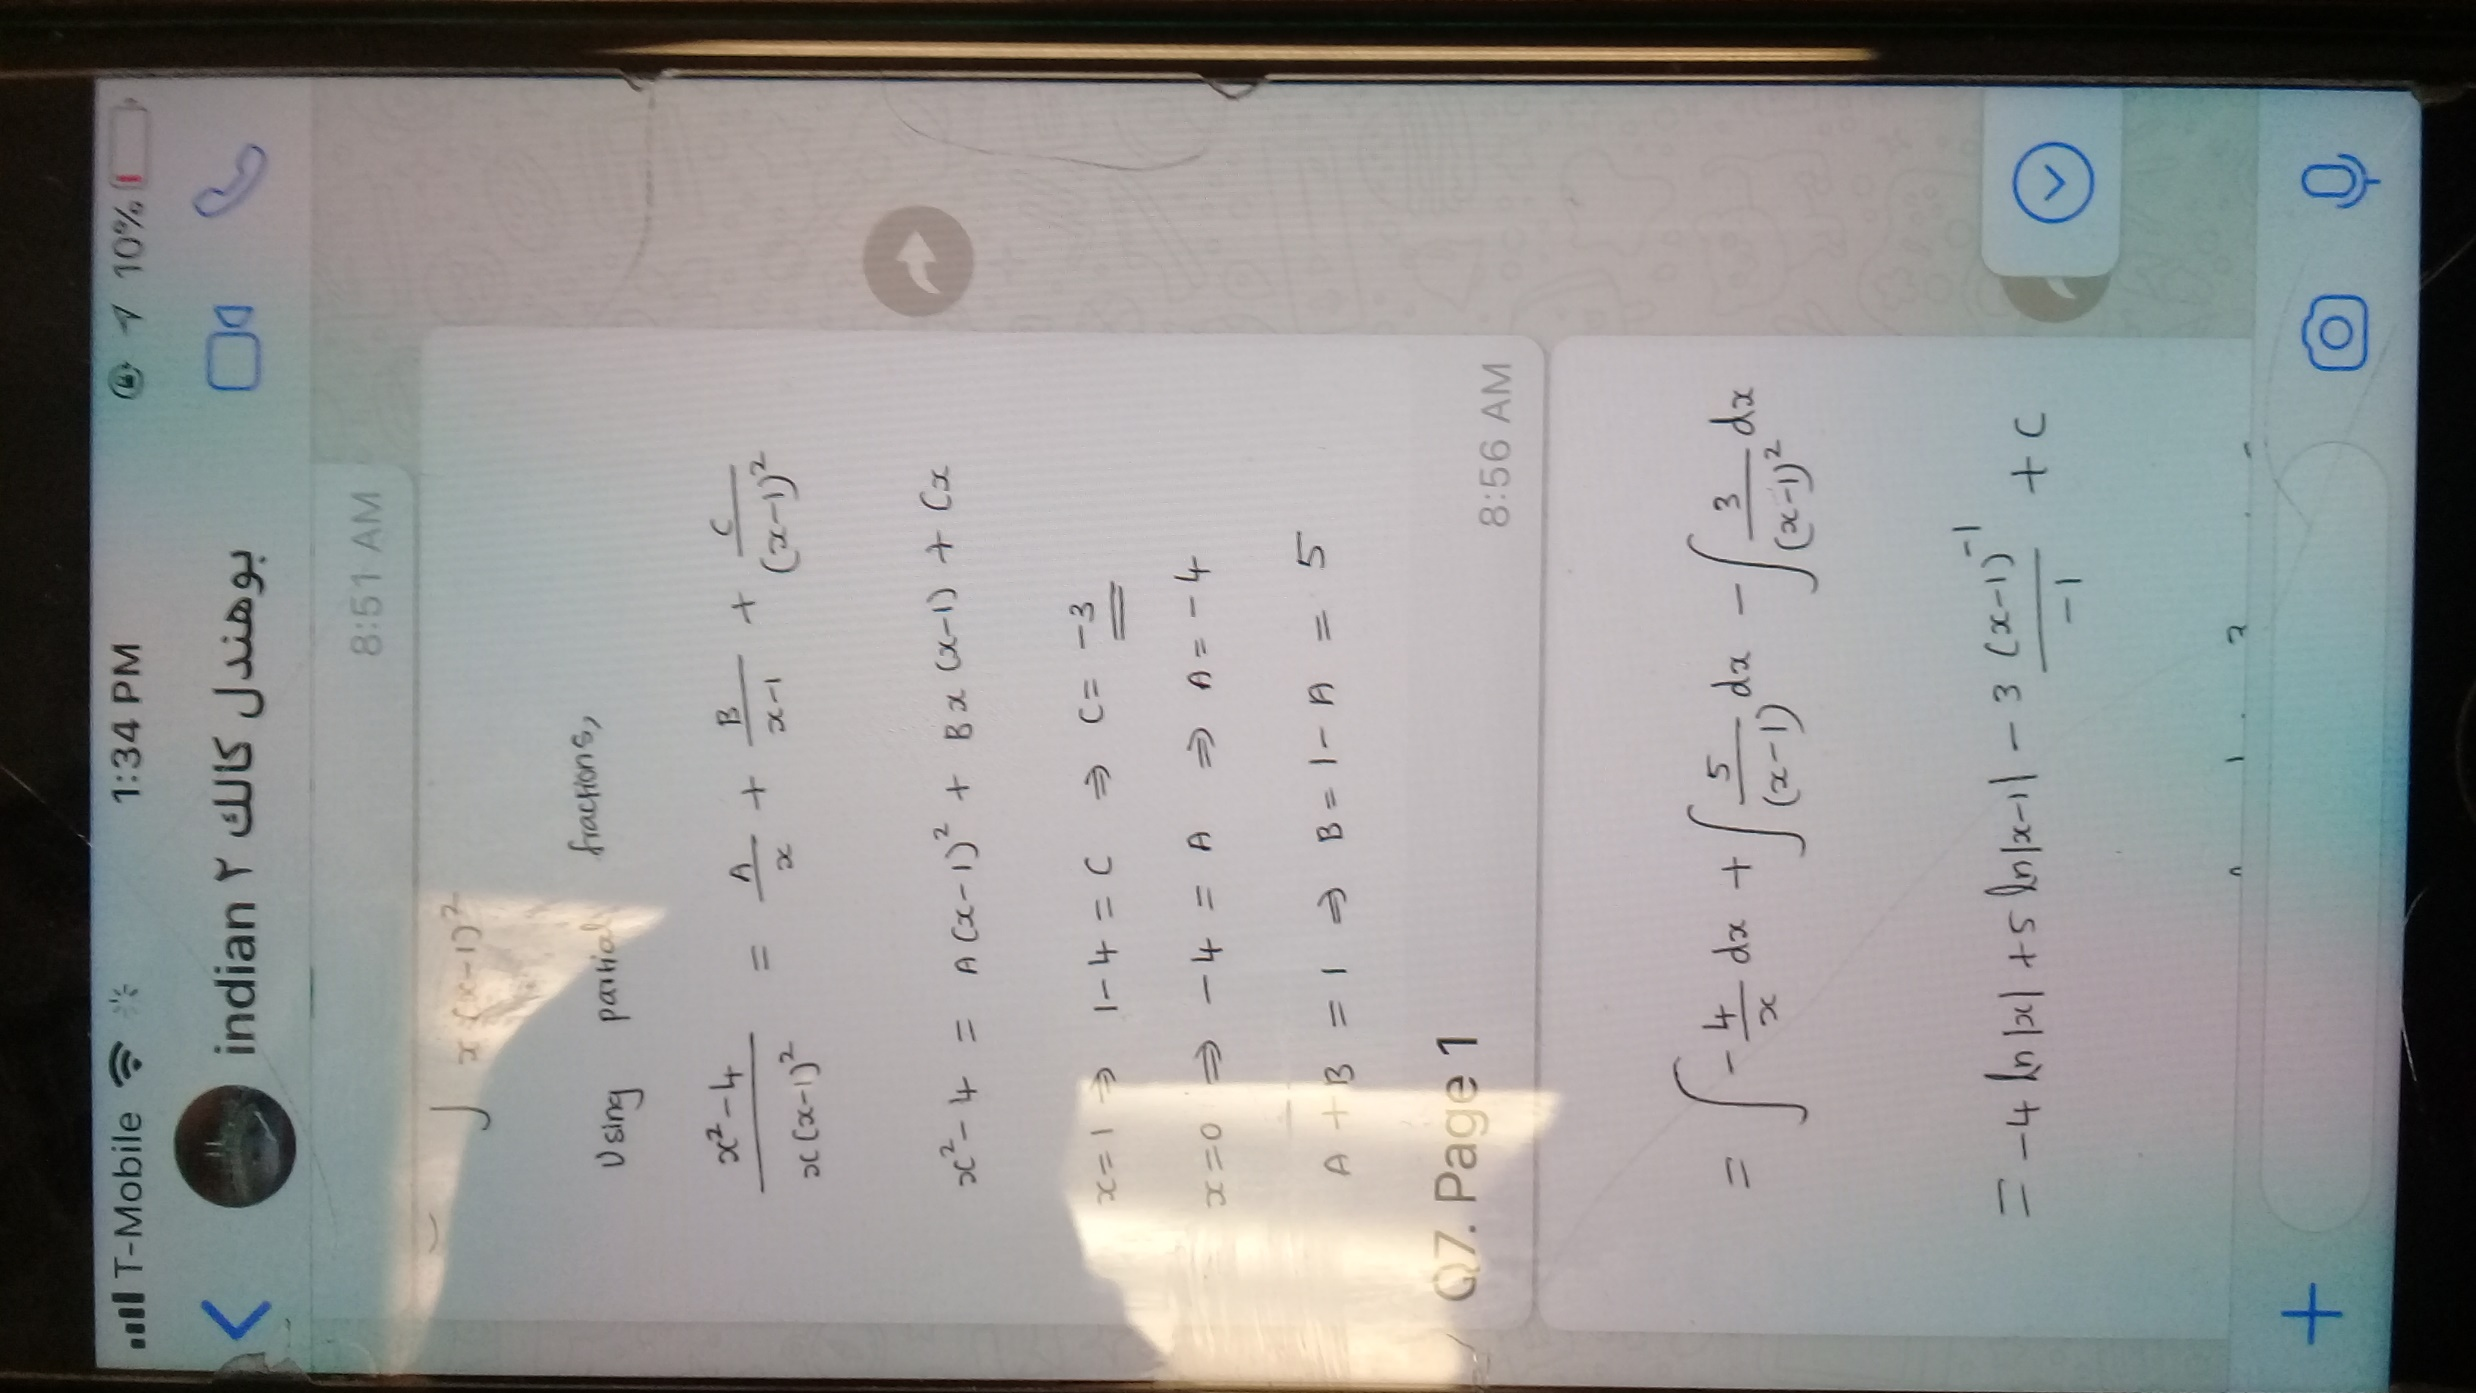 T-Mobile 1:34 PM 10%
indian ٢ بوهندل كالك
8:51 AM
∫ x(x-1)²
Using partial fractions,
x²-4 / x(x-1)² = A/x + B/x-1 + C/(x-1)²
x²-4 = A(x-1)² + Bx(x-1) + Cx
x=1 ⇒ 1-4 = C ⇒ C= -3
x=0 ⇒ -4 = A ⇒ A= -4
A+B = 1 ⇒ B= 1-A = 5
Q7. Page 1
8:56 AM
= ∫ -4/x dx + ∫ 5/(x-1) dx - ∫ 3/(x-1)² dx
= -4 ln|x| +5 ln|x-1| - 3 (x-1)⁻¹/-1 + C